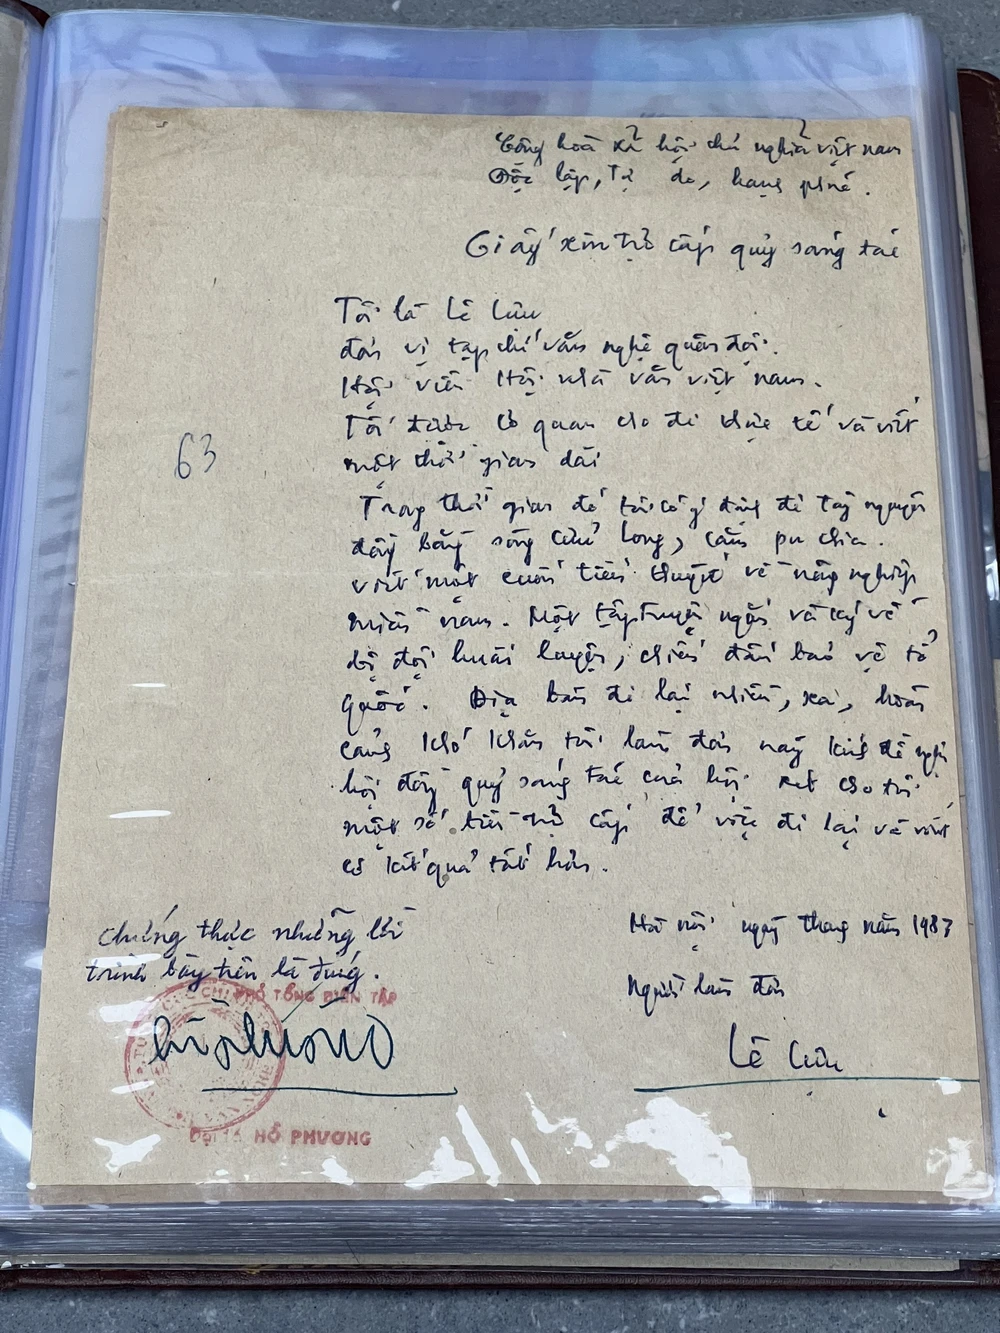 Cộng hoà xã hội chủ nghĩa việt nam
Độc lập, Tự do, hạnh phúc.
Giấy xin trợ cấp quỹ sáng tác
Tôi là Lê Lựu
đơn vị tạp chí văn nghệ quân đội.
Hội viên Hội nhà văn việt nam.
Tôi được cơ quan cho đi thực tế và viết
một thời gian dài
63
Trong thời gian đó tôi có ý định đi Tây nguyên
đồng bằng sông Cửu Long, Căm pu chia.
viết một cuốn tiểu thuyết về nông nghiệp
miền nam. Một tập truyện ngắn và ký về
bộ đội huấn luyện, chiến đấu bảo vệ tổ
quốc. Địa bàn đi lại nhiều, xa, hoàn
cảnh khó khăn tôi làm đơn này kính đề nghị
hội đồng quỹ sáng tác của hội xét cho tôi
một số tiền trợ cấp để việc đi lại và viết
có kết quả tốt hơn.
Hà nội ngày tháng năm 1983
Người làm đơn
Lê Lựu
chứng thực những lời
trình bày trên là đúng.
PHÓ TỔNG BIÊN TẬP
Hồ Phương
Đại tá HỒ PHƯƠNG